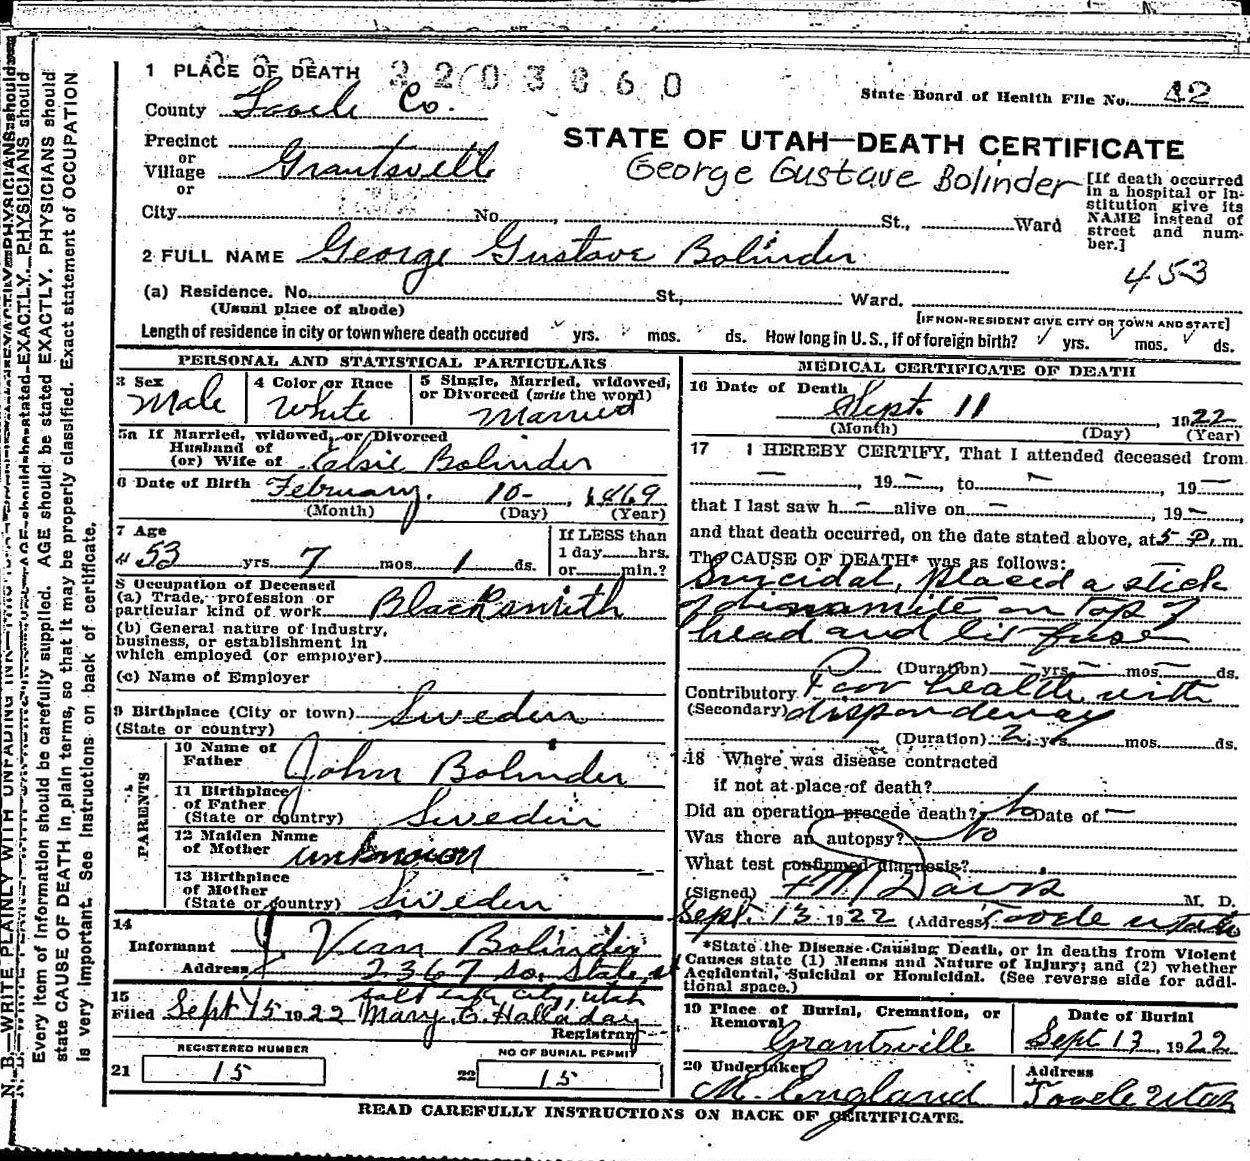 3203860
1 PLACE OF DEATH
State Board of Health File No. 42
County Tooele Co.
STATE OF UTAH—DEATH CERTIFICATE
Precinct
or
Village Grantsville
or
George Gustave Bolinder
[If death occurred in a hospital or institution give its NAME instead of street and number.]
City No. , St., Ward
2 FULL NAME George Gustave Bolinder
453
(a) Residence. No. St., Ward.
(Usual place of abode)
[IF NON-RESIDENT GIVE CITY OR TOWN AND STATE]
Length of residence in city or town where death occured yrs. mos. ds. How long in U. S., if of foreign birth? yrs. mos. ds.
PERSONAL AND STATISTICAL PARTICULARS
3 Sex
Male
4 Color or Race
White
5 Single, Married, widowed, or Divorced (write the word)
Married
5a If Married, widowed, or Divorced
Husband of
(or) Wife of Elsie Bolinder
6 Date of Birth February. 10- , 1869
(Month) (Day) (Year)
7 Age
53 yrs. 7 mos. 1 ds.
If LESS than
1 day hrs.
or min.?
8 Occupation of Deceased
(a) Trade, profession or
particular kind of work Blacksmith
(b) General nature of industry,
business, or establishment in
which employed (or employer)
(c) Name of Employer
9 Birthplace (City or town) Sweden
(State or country)
PARENTS
10 Name of
Father John Bolinder
11 Birthplace
of Father
(State or country) Sweden
12 Maiden Name
of Mother unknown
13 Birthplace
of Mother
(State or country) Sweden
14
Informant Bolinder
Address 2367 So. State st
Salt Lake City, Utah
15
Filed Sept 15 1922 Mary E. Halladay
Registrar
REGISTERED NUMBER
21 15
NO OF BURIAL PERMIT
22 15
MEDICAL CERTIFICATE OF DEATH
16 Date of Death Sept. 11 1922
(Month) (Day) (Year)
17 I HEREBY CERTIFY, That I attended deceased from
— , 19— , to — , 19—
that I last saw h— alive on — , 19—,
and that death occurred, on the date stated above, at 5 P. m.
The CAUSE OF DEATH* was as follows:
Suicidal, placed a stick
of dinamite on top of
head and lit fuse
(Duration) — yrs — mos — ds.
Contributory Poor health with
(Secondary) dispondency
(Duration) 2 yrs mos. ds.
18 Where was disease contracted
if not at place of death?
Did an operation precede death? No Date of —
Was there an autopsy? No
What test confirmed diagnosis?
(Signed) Davis M. D.
Sept. 13 1922 (Address) Tooele Utah
*State the Disease Causing Death, or in deaths from Violent
Causes state (1) Menns and Nature of Injury; and (2) whether
Accidental, Suicidal or Homicidal. (See reverse side for additional space.)
19 Place of Burial, Cremation, or
Removal Grantsville
Date of Burial
Sept 13, 1922
20 Undertaker
M. England
Address
Tooele Utah
READ CAREFULLY INSTRUCTIONS ON BACK OF CERTIFICATE.
N. B.—WRITE PLAINLY WITH UNFADING INK
Every item of information should be carefully supplied. AGE should be stated EXACTLY. PHYSICIANS should
state CAUSE OF DEATH in plain terms, so that it may be properly classified. Exact statement of OCCUPATION
is very important. See instructions on back of certificate.